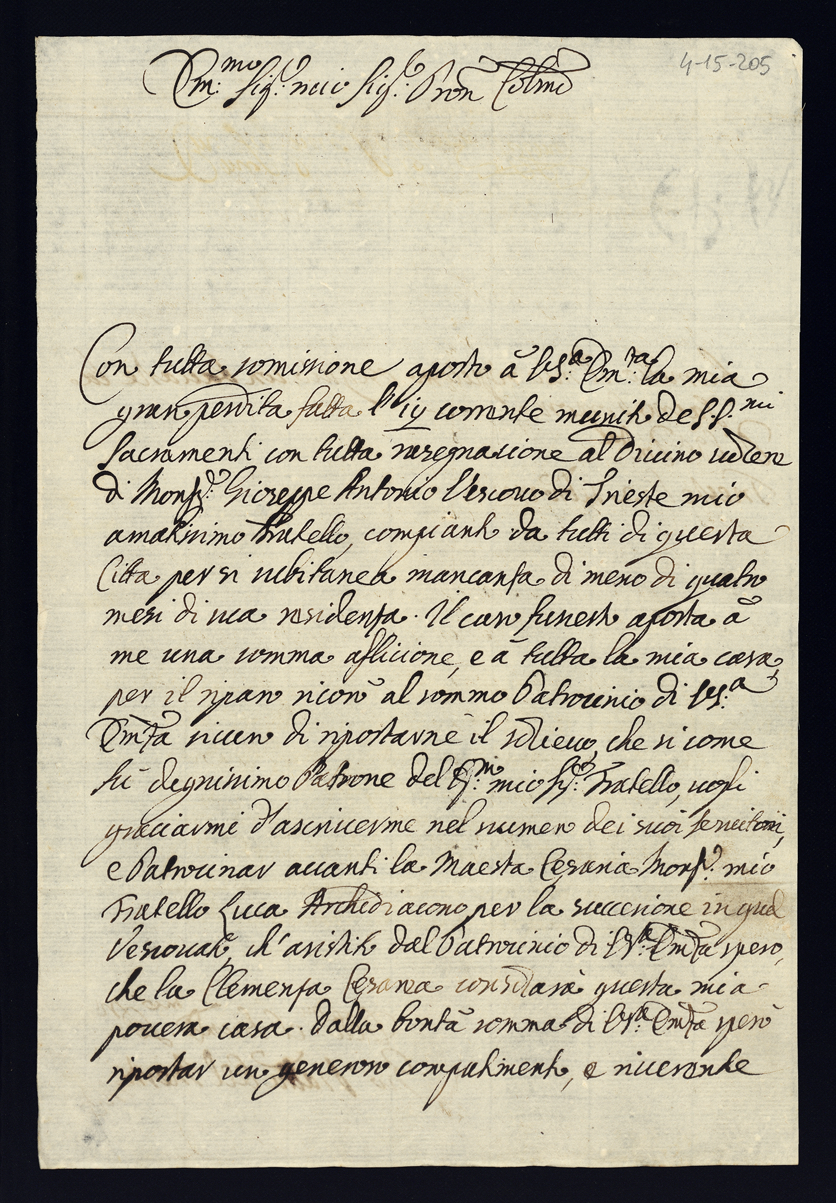 4-15-205
Em:mo Sig:r mio Sig:r Pron Colmo
Con tutta somissione aporto à VS:a Em:za la mia
gran perdita fatta l' corrente munito de SS:mi
Sacramenti con tutta rasegnacione al Divino volere
di Monsr: Gioseppe Antonio Vescovo di Trieste mio
amatissimo Fratello, compianto da tutti di questa
Citta per si subitanea mancansa di meno di quatro
mesi di sua residensa. Il caso funesto aporta à
me una somma aflicione, e à tutta la mia casa,
per il riparo ricorò al sommo Patrocinio di VS:a
Emza sicuro di riportarne il solievo, che si come
fù degnissimo Patrone del mio Sigr Fratello, vogli
graciarmi d'ascriverme nel numero dei suoi servitori,
e Patrocinar avanti la Maesta Cesaria Monsr: mio
Fratello Luca Archidiacono per la successione in quel
Vescovato, ch'asistito dal Patrocinio di VS:a Emza spero,
che la Clemensa Cesarea consolarà questa mia
povera casa. Dalla bontà somma di VS:a Emza sperò
riportar un generoso compatimento, e riverente